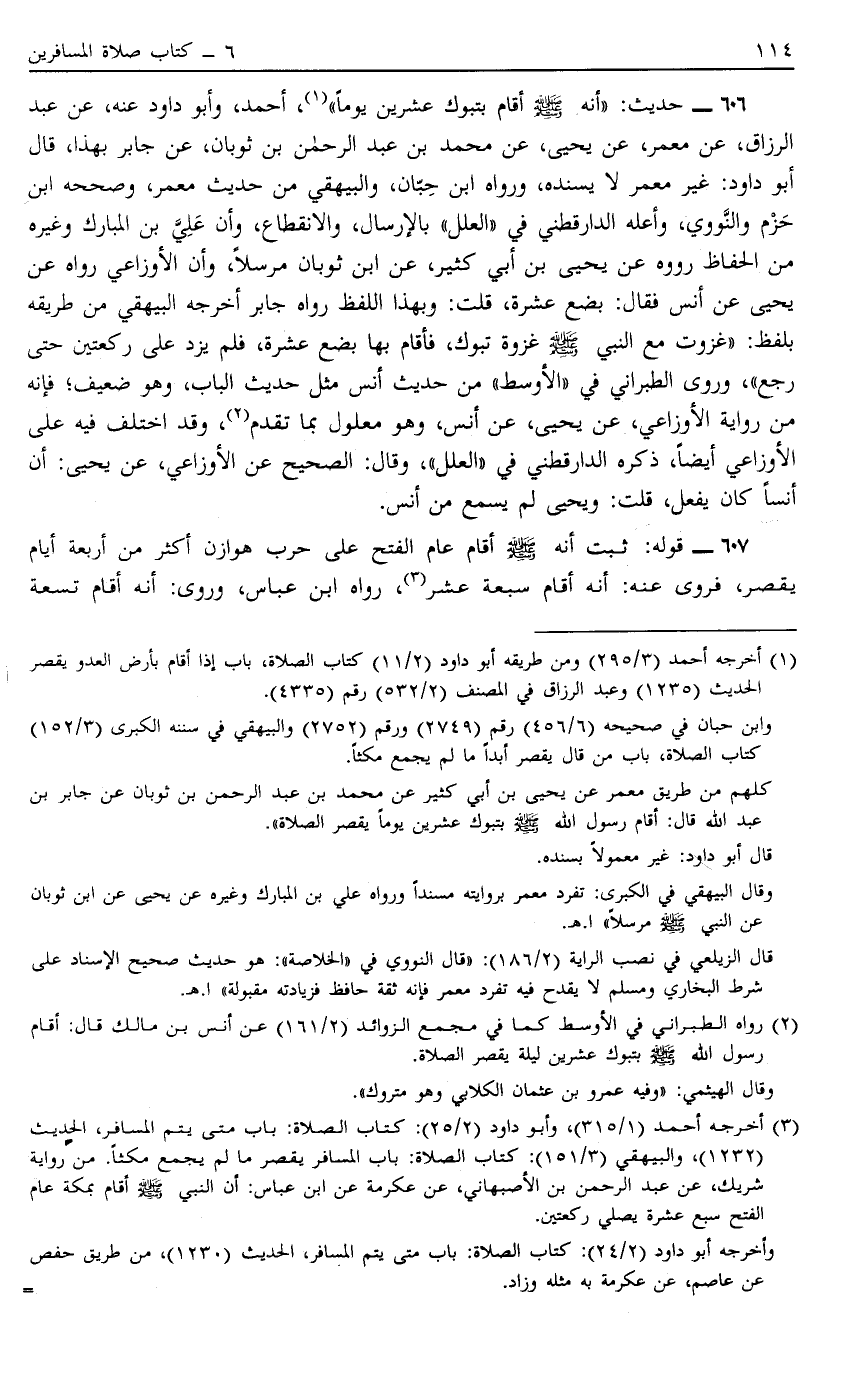 ١١٤ ٦ ــ كتاب صلاة المسافرين
٦٠٦ ــ حديث: «أنه ﷺ أقام بتبوك عشرين يوماً»(١)، أحمد، وأبو داود عنه، عن عبد
الرزاق، عن معمر، عن يحيى، عن محمد بن عبد الرحمٰن بن ثوبان، عن جابر بهذا، قال
أبو داود: غير معمر لا يسنده، ورواه ابن حِبّان، والبيهقي من حديث معمر، وصححه ابن
حَزْم والنَّووي، وأعله الدارقطني في «العلل» بالإرسال، والانقطاع، وأن عَلِيَّ بن المبارك وغيره
من الحفاظ رووه عن يحيى بن أبي كثير، عن ابن ثوبان مرسلاً، وأن الأوزاعي رواه عن
يحيى عن أنس فقال: بضع عشرة، قلت: وبهذا اللفظ رواه جابر أخرجه البيهقي من طريقه
بلفظ: «غزوت مع النبي ﷺ غزوة تبوك، فأقام بها بضع عشرة، فلم يزد على ركعتين حتى
رجع»، وروى الطبراني في «الأوسط» من حديث أنس مثل حديث الباب، وهو ضعيف؛ فإنه
من رواية الأوزاعي، عن يحيى، عن أنس، وهو معلول بما تقدم(٢)، وقد اختلف فيه على
الأوزاعي أيضاً، ذكره الدارقطني في «العلل»، وقال: الصحيح عن الأوزاعي، عن يحيى: أن
أنساً كان يفعل، قلت: ويحيى لم يسمع من أنس.
٦٠٧ ــ قوله: ثبت أنه ﷺ أقام عام الفتح على حرب هوازن أكثر من أربعة أيام
يقصر، فروى عنه: أنه أقام سبعة عشر(٣)، رواه ابن عباس، وروى: أنه أقام تسعة
(١) أخرجه أحمد (٢٩٥/٣) ومن طريقه أبو داود (١١/٢) كتاب الصلاة، باب إذا أقام بأرض العدو يقصر
الحديث (١٢٣٥) وعبد الرزاق في المصنف (٥٣٢/٢) رقم (٤٣٣٥).
وابن حبان في صحيحه (٤٥٦/٦) رقم (٢٧٤٩) ورقم (٢٧٥٢) والبيهقي في سننه الكبرى (١٥٢/٣)
كتاب الصلاة، باب من قال يقصر أبداً ما لم يجمع مكثاً.
كلهم من طريق معمر عن يحيى بن أبي كثير عن محمد بن عبد الرحمن بن ثوبان عن جابر بن
عبد الله قال: أقام رسول الله ﷺ بتبوك عشرين يوماً يقصر الصلاة».
قال أبو داود: غير معمولاً بسنده.
وقال البيهقي في الكبرى: تفرد معمر بروايته مسنداً ورواه علي بن المبارك وغيره عن يحيى عن ابن ثوبان
عن النبي ﷺ مرسلاً» ا.هـ.
قال الزيلعي في نصب الراية (١٨٦/٢): «قال النووي في «الخلاصة»: هو حديث صحيح الإسناد على
شرط البخاري ومسلم لا يقدح فيه تفرد معمر فإنه ثقة حافظ فزيادته مقبولة» ا.هـ.
(٢) رواه الطبراني في الأوسط كما في مجمع الزوائد (١٦١/٢) عن أنس بن مالك قال: أقام
رسول الله ﷺ بتبوك عشرين ليلة يقصر الصلاة.
وقال الهيثمي: «وفيه عمرو بن عثمان الكلابي وهو متروك».
(٣) أخرجه أحمد (٣١٥/١)، وأبو داود (٢٥/٢): كتاب الصلاة: باب متى يتم المسافر، الحديث
(١٢٣٢)، والبيهقي (١٥١/٣): كتاب الصلاة: باب المسافر يقصر ما لم يجمع مكثاً. من رواية
شريك، عن عبد الرحمن بن الأصبهاني، عن عكرمة عن ابن عباس: أن النبي ﷺ أقام بمكة عام
الفتح سبع عشرة يصلي ركعتين.
وأخرجه أبو داود (٢٤/٢): كتاب الصلاة: باب متى يتم المسافر، الحديث (١٢٣٠)، من طريق حفص
عن عاصم، عن عكرمة به مثله وزاد. =